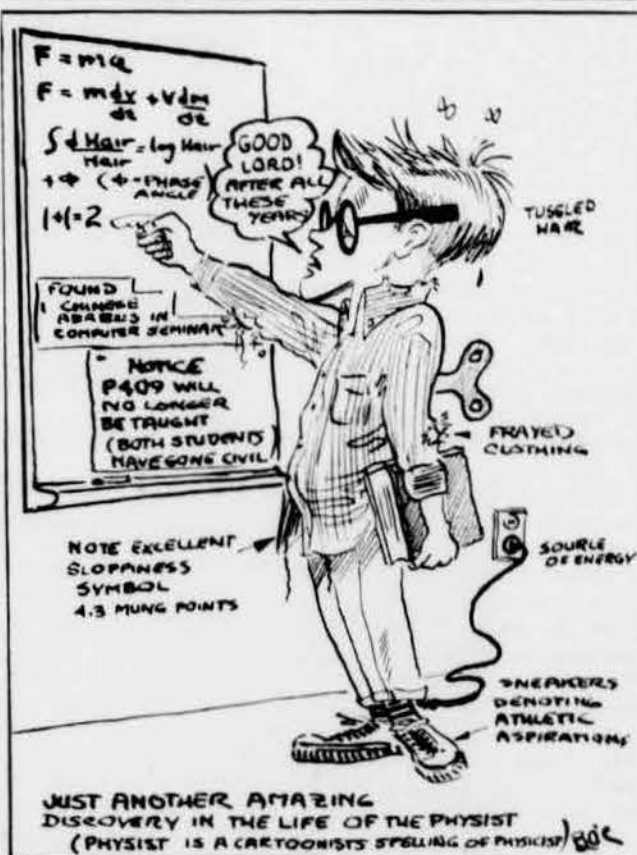 F = ma
F = m dv/dt + v dm/dt
∫ d Hair/Hair = log Hair
+ ϕ (ϕ = PHASE
ANGLE)
1+1=2
GOOD
LORD!
AFTER ALL
THESE
YEARS
TUSSLED
HAIR
FOUND
1 CHINESE
ABACUS IN
COMPUTER SEMINAR
NOTICE
P409 WILL
NO LONGER
BE TAUGHT
(BOTH STUDENTS
HAVE GONE CIVIL)
FRAYED
CLOTHING
NOTE EXCELLENT
SLOPPINESS
SYMBOL
4.3 MUNG POINTS
SOURCE
OF ENERGY
SNEAKERS
DENOTING
ATHLETIC
ASPIRATIONS
JUST ANOTHER AMAZING
DISCOVERY IN THE LIFE OF THE PHYSIST
(PHYSIST IS A CARTOONISTS SPELLING OF PHYSICIST)